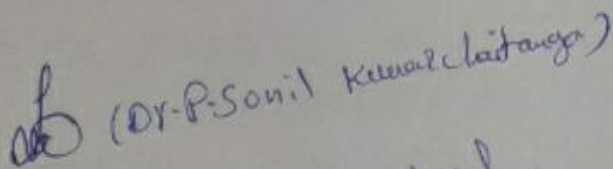 (Dr-P-Sonil Kumar chaitanya)